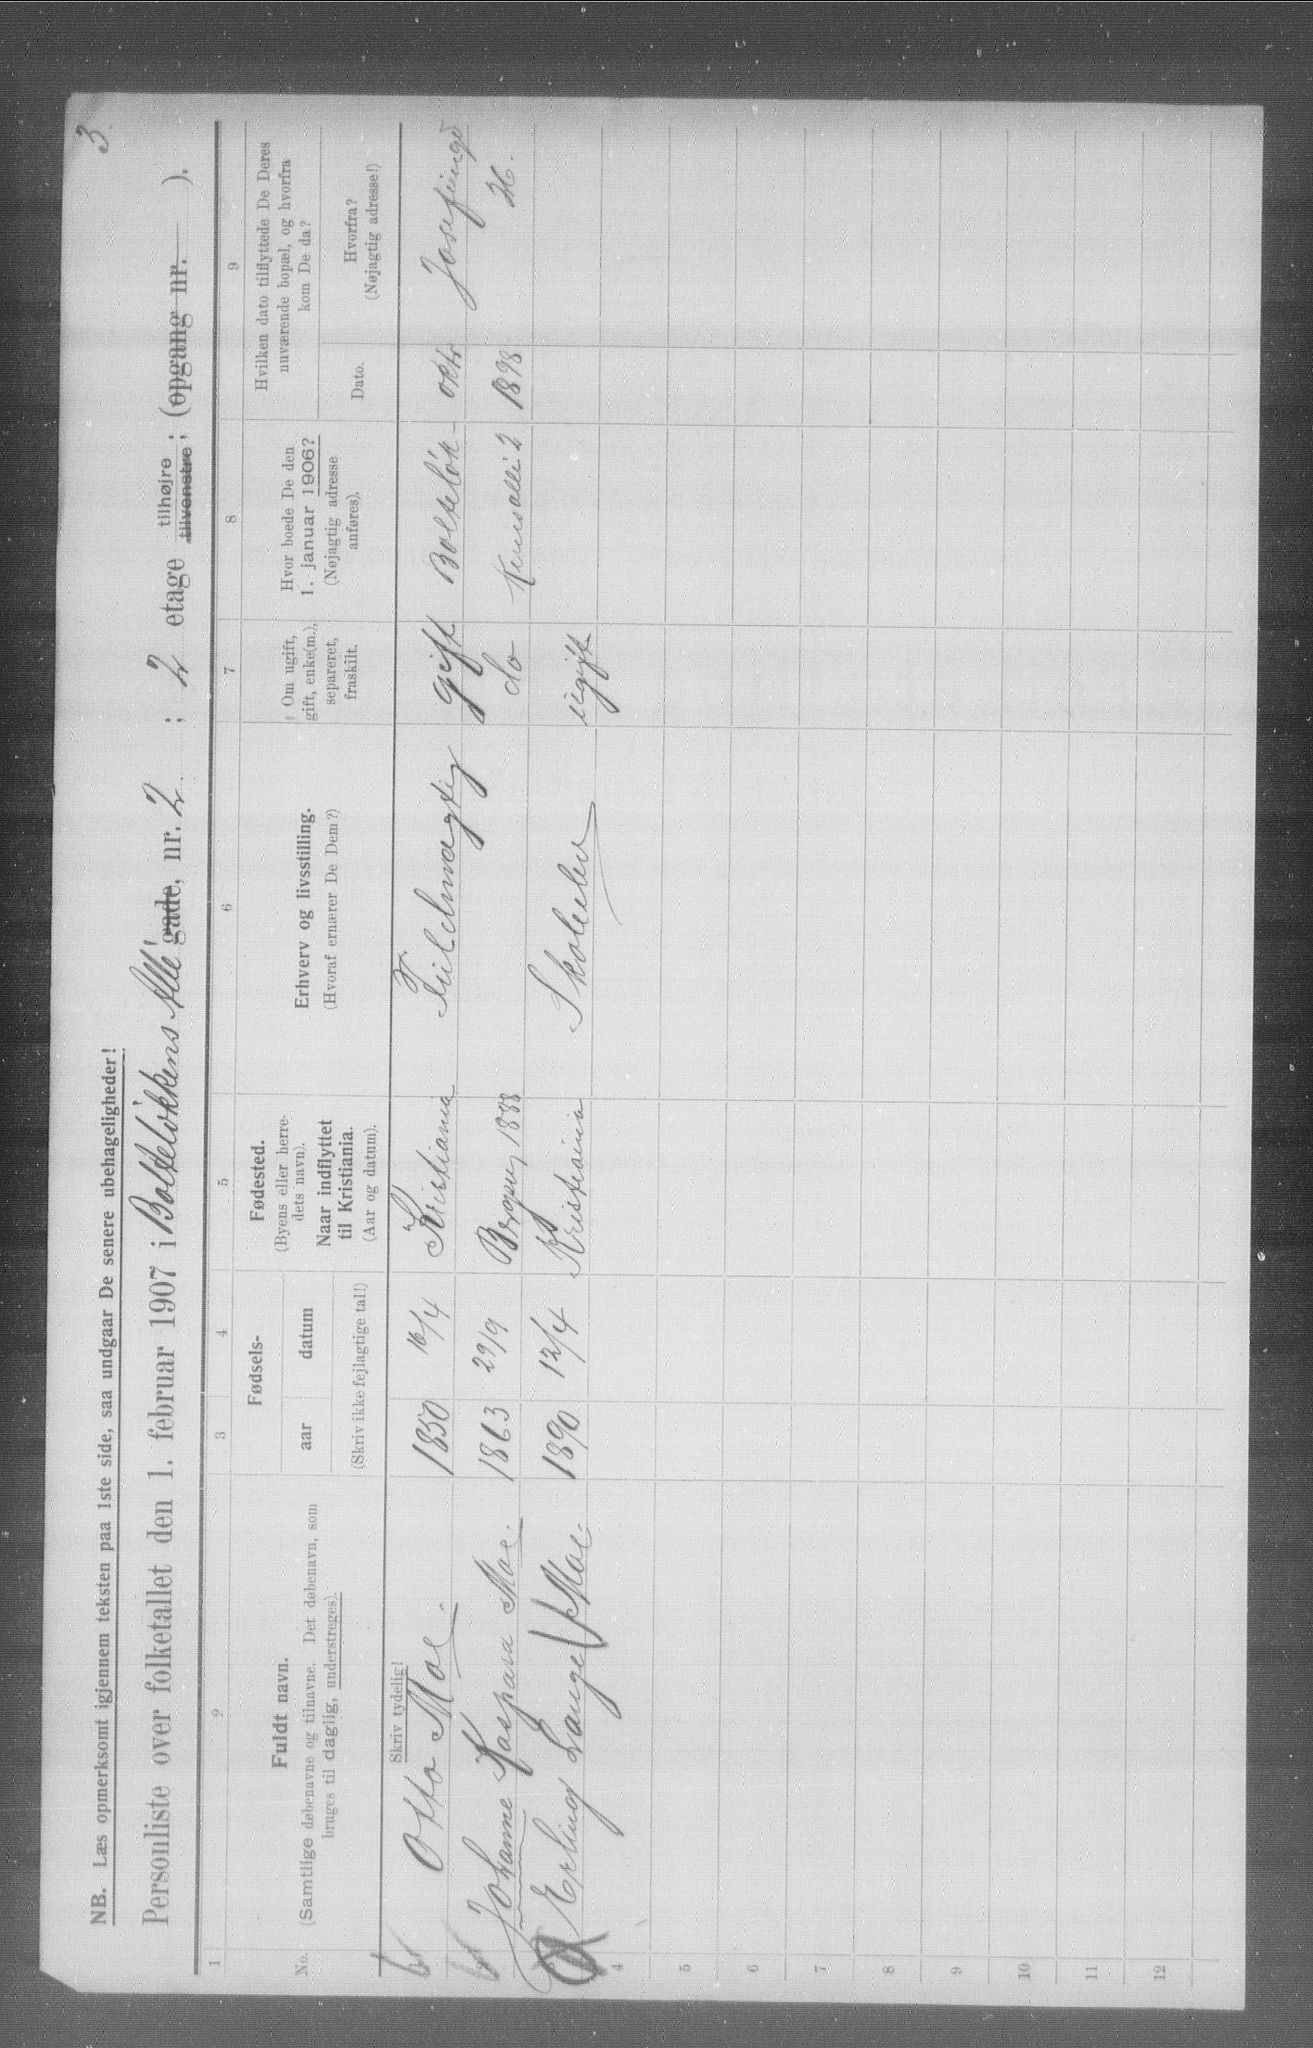 3
NB. Læs opmerksomt igjennem teksten paa 1ste side, saa undgaar De senere ubehageligheder!
Personliste over folketallet den 1. februar 1907 i Bolteløkkens Allé gade, nr. 2 ; 2 etage tilhøjre ; (opgang nr. ).
tilvenstre ;
1 2 3 4 5 6 7 8 9
No.
Fuldt navn.
(Samtlige døbenavne og tilnavne. Det døbenavn, som
bruges til daglig, understreges).
Fødsels-
aar datum
(Skriv ikke fejlagtige tal!)
Fødested.
(Byens eller herre-
dets navn).
Naar indflyttet
til Kristiania.
(Aar og datum).
Erhverv og livsstilling.
(Hvoraf ernærer De Dem?)
Om ugift,
gift, enke(m.),
separeret,
fraskilt.
Hvor boede De den
1. januar 1906?
(Nøjagtig adresse
anføres).
Hvilken dato tilflyttede De Deres
nuværende bopæl, og hvorfra
kom De da?
Dato.
Hvorfra?
(Nøjagtig adresse!)
Skriv tydelig!
Otto Moe. 1850 16/4 Kristiania Fuldmægtig gift Bolteløk- oktr Josefinegd
Johanne Kaspara Moe. 1863 29/9 Bergen 1888 do kensallé 2 1898 26.
Erling Lange Moe. 1890 12/4 Kristiania Skoleelev ugift
4
5
6
7
8
9
10
11
12